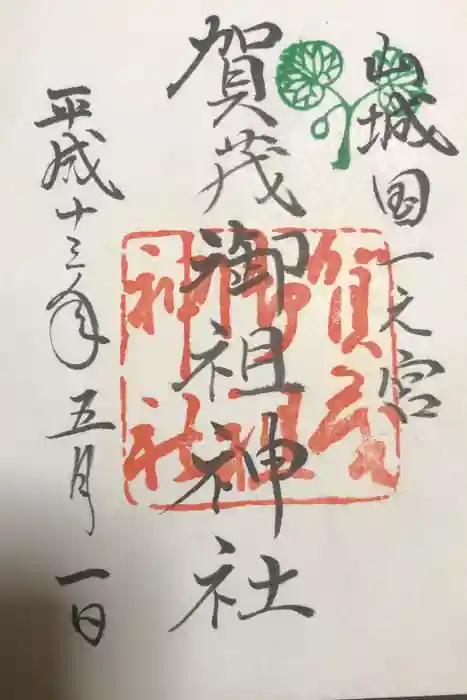 山城国一之宮
賀茂御祖神社
賀茂
御祖
神社
平成十三年五月一日